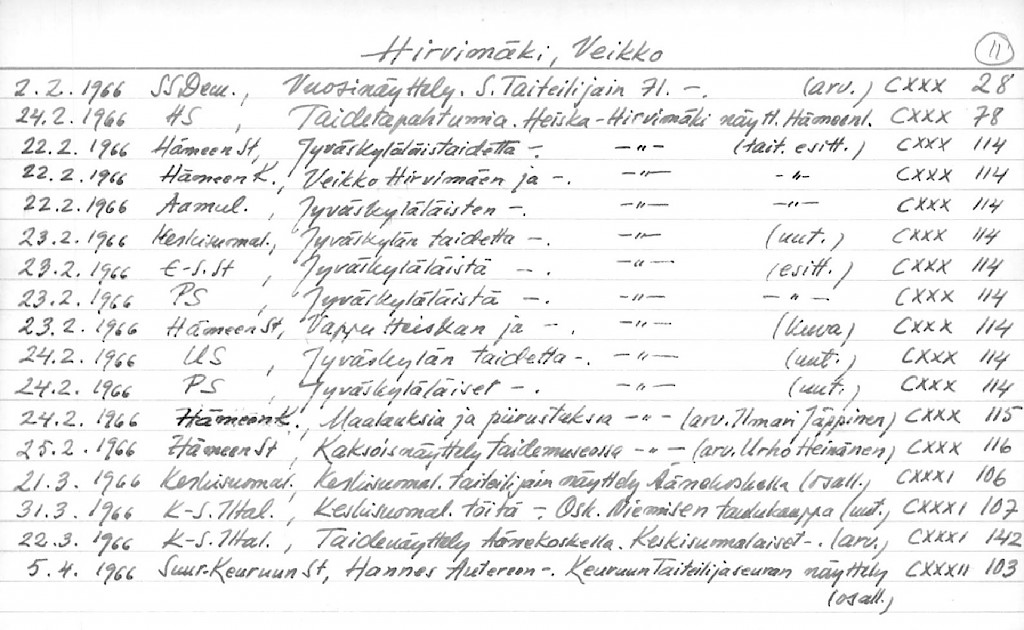 Hirvimäki, Veikko 11
2.2.1966 SSDem., Vuosinäyttely. S. Taiteilijain 71. -. (arv.) CXXX 28
24.2.1966 HS, Taidetapahtumia. Heiska-Hirvimäki näytt. Hämeenl. CXXX 78
22.2.1966 HämeenSt, Jyväskyläläistaidetta -. -"- (tait. esitt.) CXXX 114
22.2.1966 HämeenK., Veikko Hirvimäen ja -. -"- -"- CXXX 114
22.2.1966 Aamul., Jyväskyläläisten -. -"- -"- CXXX 114
23.2.1966 Keskisuomal., Jyväskylän taidetta -. -"- (uut.) CXXX 114
23.2.1966 E-S.St, Jyväskyläläistä -. -"- (esitt.) CXXX 114
23.2.1966 PS, Jyväskyläläistä -. -"- -"- CXXX 114
23.2.1966 HämeenSt, Vappu Heiskan ja -. -"- (kuva) CXXX 114
24.2.1966 US, Jyväskylän taidetta -. -"- (uut.) CXXX 114
24.2.1966 PS, Jyväskyläläiset -. -"- (uut.) CXXX 114
24.2.1966 HämeenK., Maalauksia ja piirustuksia -"- (arv. Ilmari Jäppinen) CXXX 115
25.2.1966 HämeenSt, Kaksoisnäyttely taidemuseossa -"- (arv. Urho Heinänen) CXXX 116
21.3.1966 Keskisuomal., Keskisuomal. taiteilijain näyttely Äänekoskella (osall.) CXXXI 106
31.3.1966 K-S.Iltal., Keskisuomal. töitä -. Osk. Niemisen taulukauppa (uut.) CXXXI 107
22.3.1966 K-S.Iltal., Taidenäyttely Äänekoskella. Keskisuomalaiset -. (arv.) CXXXI 142
5.4.1966 Suur-KeuruunSt, Hannes Autereen -. Keuruun Taiteilijaseuran näyttely CXXXII 103
(osall.)